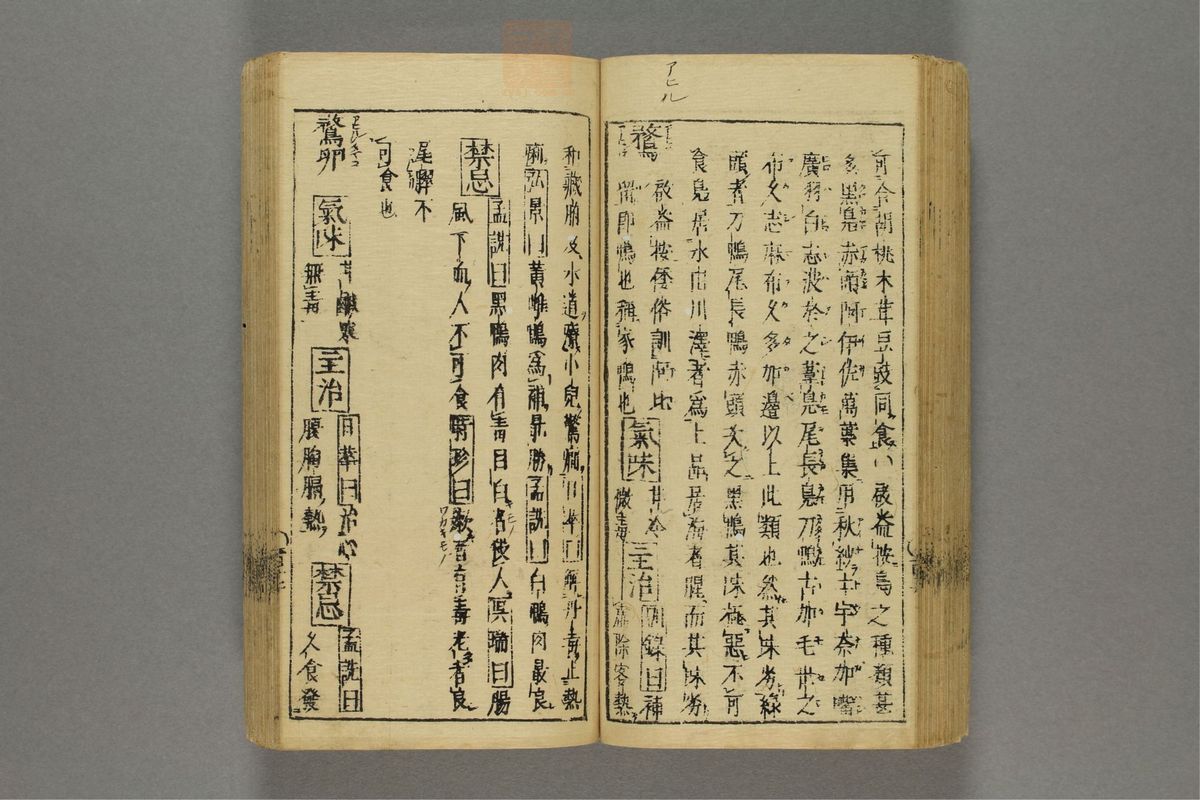 アヒル
可合胡桃木茸豆豉同食啓益按鳥之種類甚
多黒鳧赤頭阿伊佐萬葉集用秋紗古宇奈加
廣羽白志波於之葦鳧尾長鳧刀鴨古加毛世之
布久志麻布久多加邊以上此類也然其味劣緑
頭者刀鴨尾長鴨赤頭次之黒鴨其味極惡不可
食鳧居水田川澤者為上品居海者腥而其味劣
鶩
啓益按倭俗訓阿比
留即鴨也稱家鴨也
氣味
甘冷
微毒
主治
別録曰補
虛除客熱
和藏腑及水道療小兒驚癇日華曰解丹毒止熱
痢弘景曰黄雌鴨為補最勝孟詵曰白鴨肉最良
禁忌
孟詵曰黒鴨肉有毒目白者殺人李鵬曰腸
風下血人不可食時珍曰嫩者毒老者良
尾臎不
可食也
鶩卵
氣味
甘鹹寒
無毒
主治
日華曰治心
腹胸膈熱
禁忌
孟詵曰
久食發